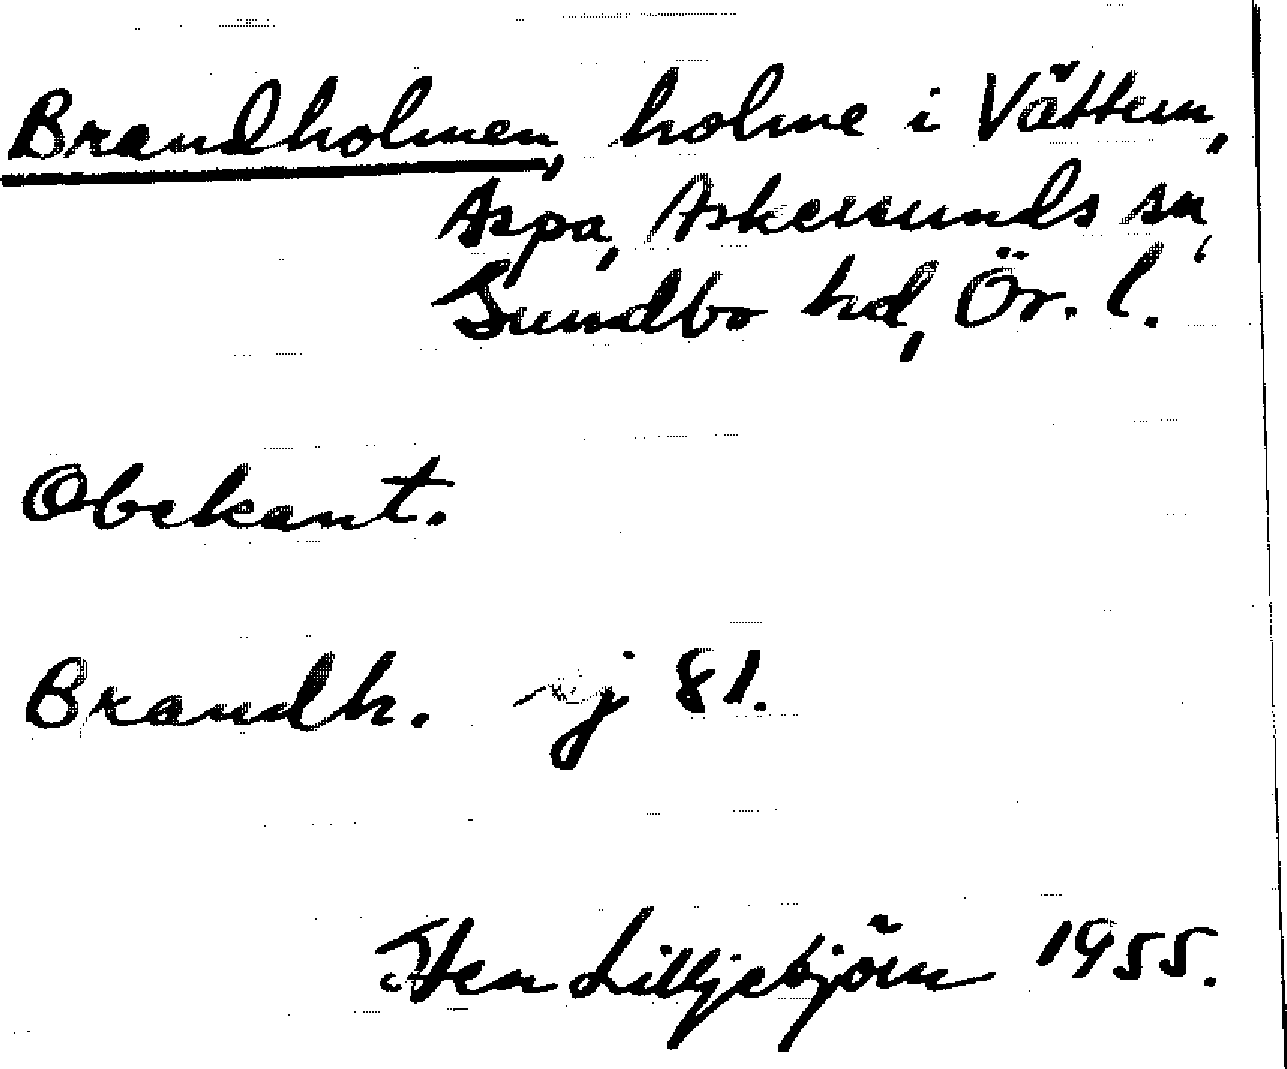 Brandholmen, holme i Vättern,
Aspa, Askersunds sn,
Sundbo hd, Ör. l.
Obekant.
Brandh. rj 81.
Sten Lilljebjörn 1955.